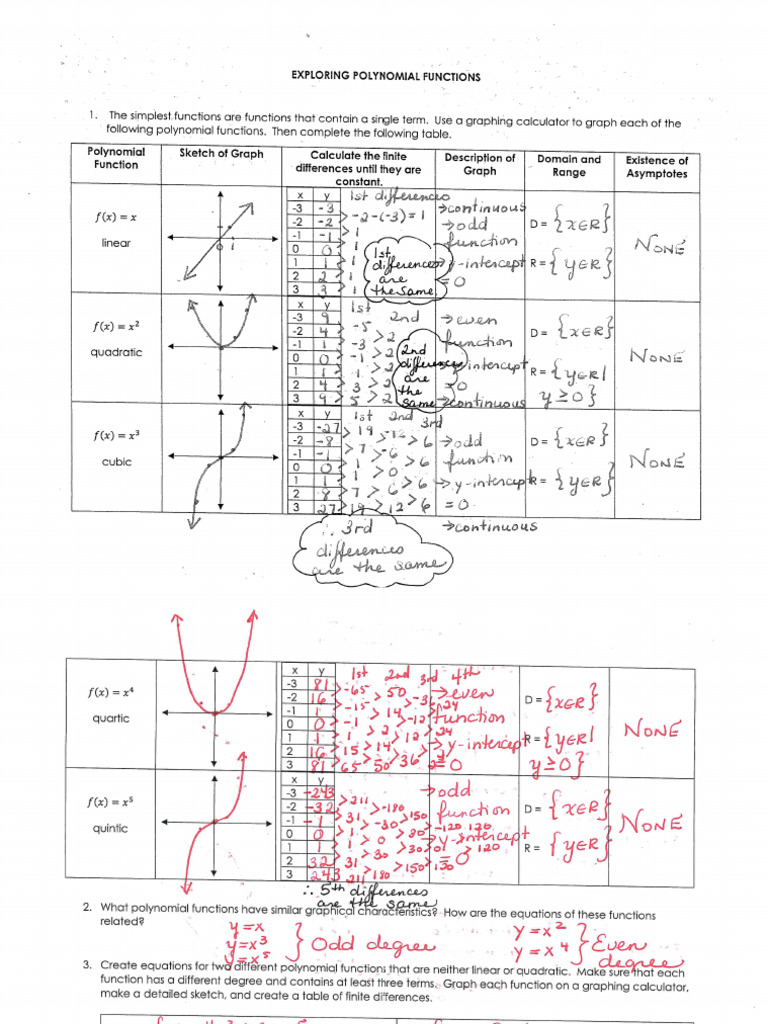 EXPLORING POLYNOMIAL FUNCTIONS
1. The simplest functions are functions that contain a single term. Use a graphing calculator to graph each of the
following polynomial functions. Then complete the following table.
Polynomial Function
Sketch of Graph
Calculate the finite differences until they are constant.
Description of Graph
Domain and Range
Existence of Asymptotes
f(x) = x
linear
1
x y 1st differences
-3 -3
-2 -2 > -2-(-3)=1
-1 -1 > 1
0 0 > 1
1 1 > 1
2 2 > 1
3 3 > 1
1st differences are the same
→continuous
→odd function
y-intercept = 0
D = {XER}
R = {yER}
NONE
f(x) = x²
quadratic
x y 1st 2nd
-3 9
-2 4 > -5
-1 1 > -3 > 2
0 0 > -1 > 2
1 1 > 1 > 2
2 4 > 3 > 2
3 9 > 5 > 2
2nd differences are the same
→even function
intercept =0
→continuous
D = {XER}
R = {yER| y≥0}
NONE
f(x) = x³
cubic
x y 1st 2nd 3rd
-3 -27
-2 -8 > 19
-1 -1 > 7 > -12
0 0 > 1 > -6 > 6
1 1 > 1 > 0 > 6
2 8 > 7 > 6 > 6
3 27 > 19 > 12 > 6
∴ 3rd differences are the same
→odd function
→y-intercept =0
→continuous
D = {XER}
R = {yER}
NONE
f(x) = x⁴
quartic
x y 1st 2nd 3rd 4th
-3 81
-2 16 > -65
-1 1 > -15 > 50
0 0 > -1 > 14 > -36
1 1 > 1 > 2 > -12 > 24
2 16 > 15 > 14 > 12 > 24
3 81 > 65 > 50 > 36
→even function
→y-intercept = 0
D = {XER}
R = {yER| y≥0}
NONE
f(x) = x⁵
quintic
x y
-3 -243
-2 -32 > 211
-1 -1 > 31 > -180
0 0 > 1 > -30 > 150
1 1 > 1 > 0 > 30 > -120 120
2 32 > 31 > 30 > 30 > 0 > 120
3 243 211 180 > 150
∴ 5th differences are the same
→odd function
→y-intercept = 0
D = {XER}
R = {yER}
NONE
2. What polynomial functions have similar graphical characteristics? How are the equations of these functions
related?
y=x
y=x³
y=x⁵
} Odd degree
y=x²
y=x⁴
} Even degree
3. Create equations for two different polynomial functions that are neither linear or quadratic. Make sure that each
function has a different degree and contains at least three terms. Graph each function on a graphing calculator,
make a detailed sketch, and create a table of finite differences.